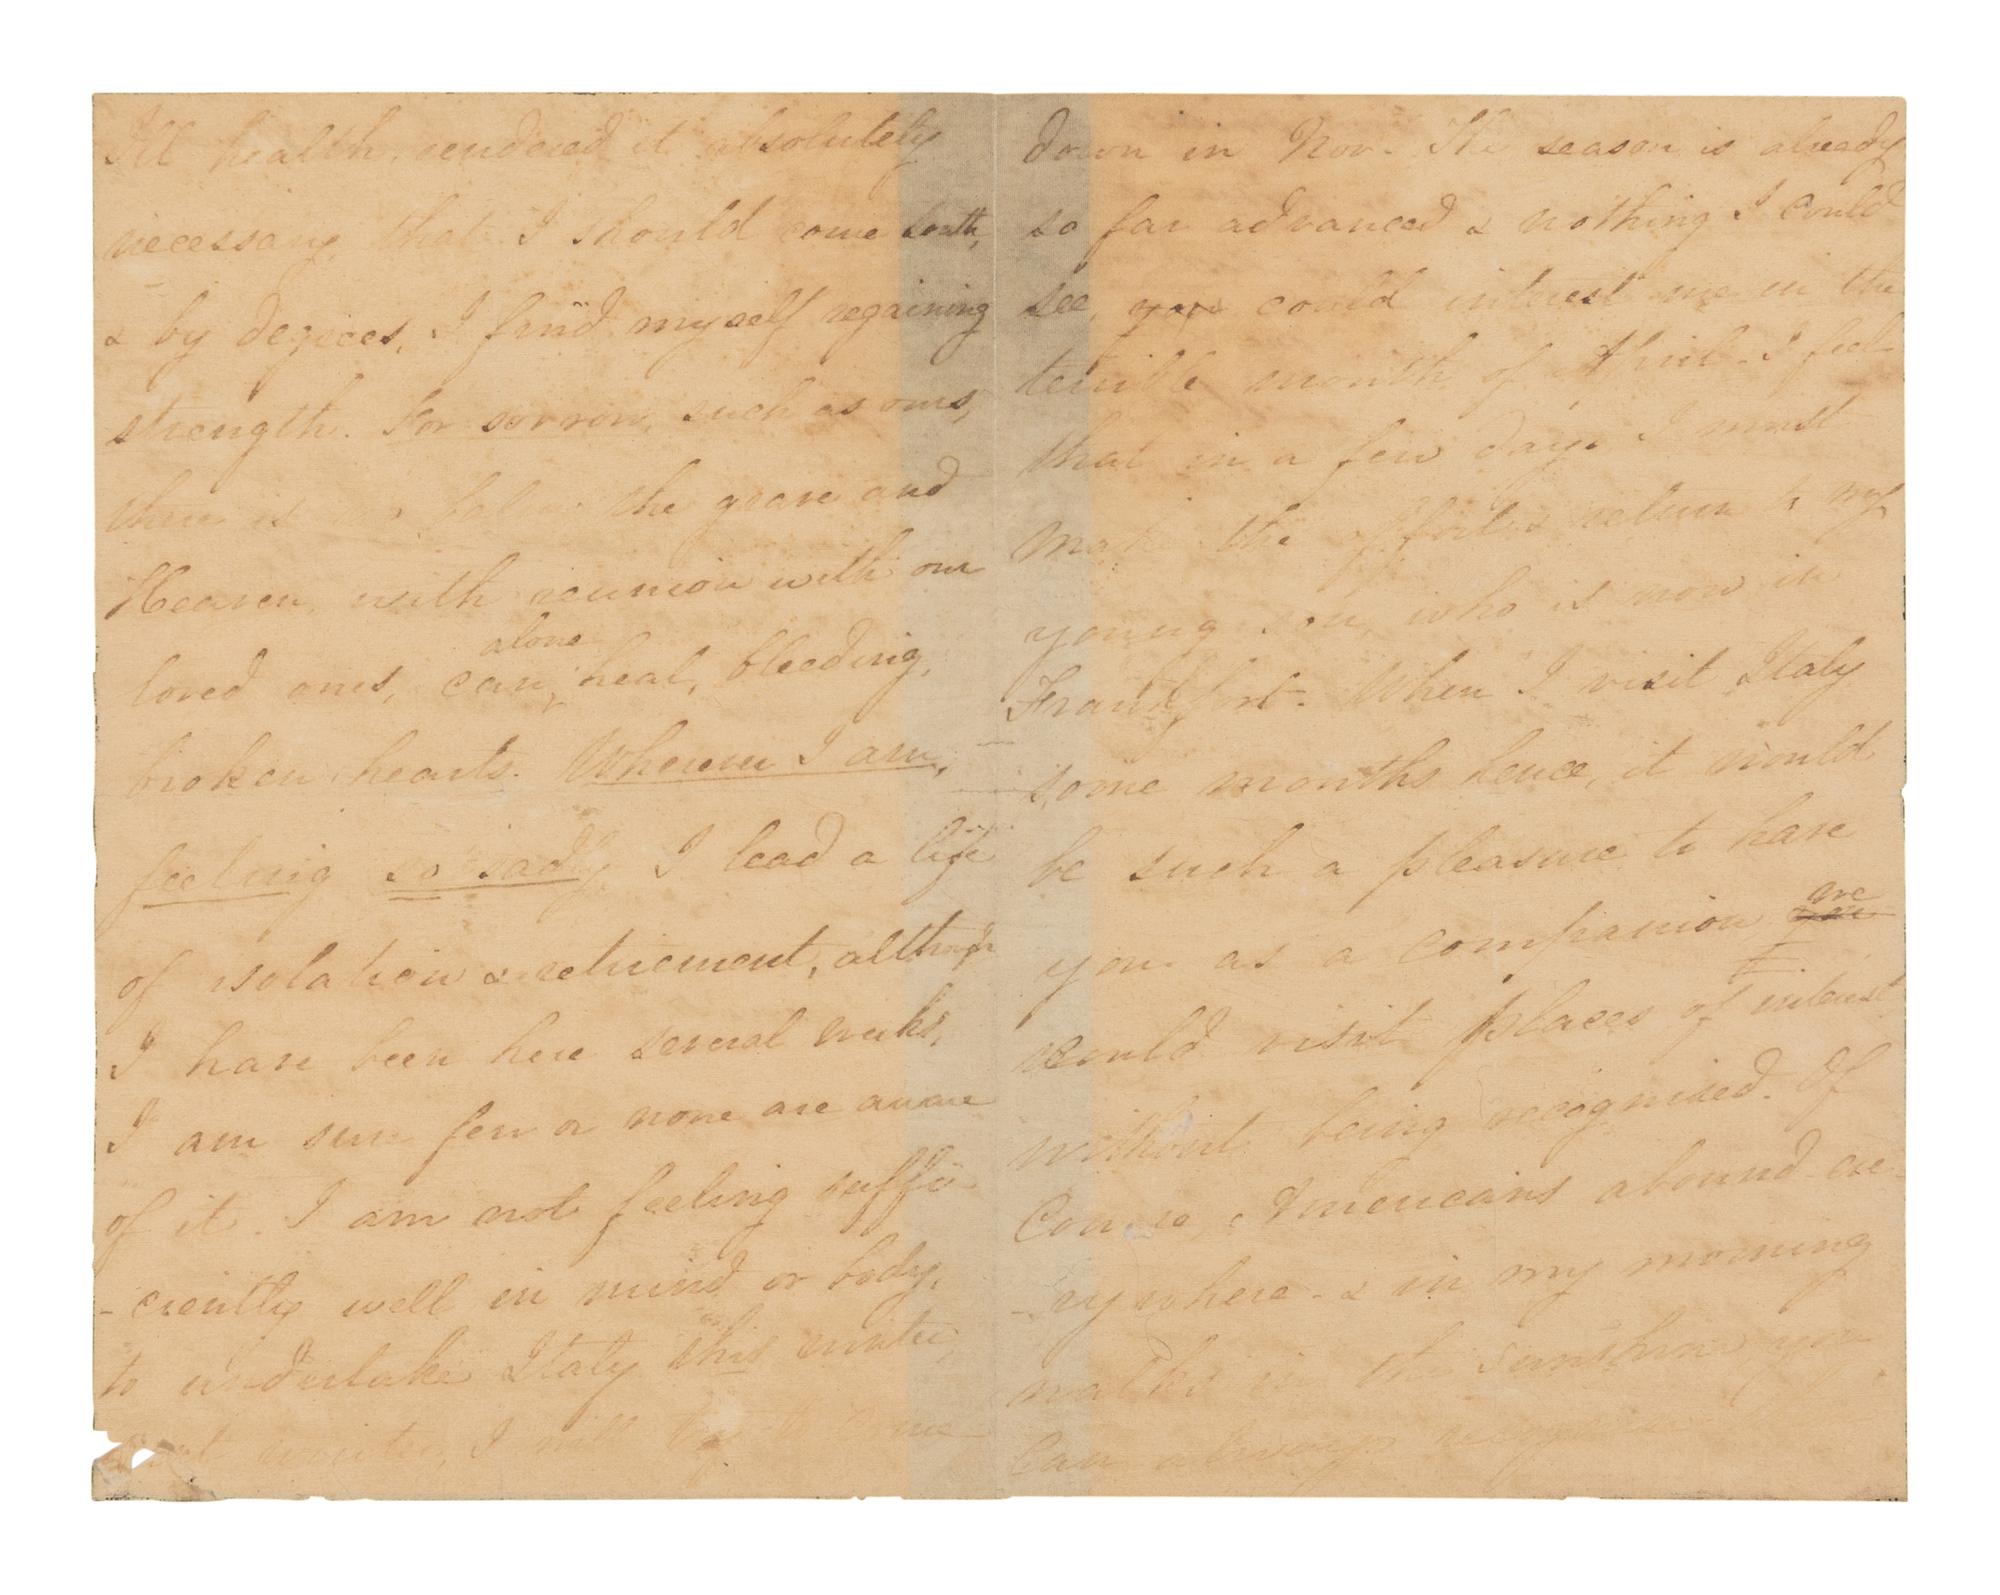 Ill health, rendered it absolutely
necessary, that I should come South,
& by degrees, I find myself regaining
strength. For sorrow, such as ours,
there is no balm, the grave and
Heaven, with reunion with our
loved ones, can, alone heal, bleeding,
broken hearts. Wherever I am,
feeling so sadly, I lead a life
of isolation & retirement, although
I have been here several weeks,
I am sure few or none are aware
of it. I am not feeling suffi
-ciently well in mind or body,
to undertake Italy this winter,
next winter, I will try & come
down in Nov. The season is already
so far advanced & nothing I could
see, could interest me in the
terrible month of April - I feel
that in a few days I must
make the effort & return to my
young son, who is now in
Frankfort - When I visit Italy
some months hence, it would
be such a pleasure to have
you as a companion we
would visit places of interest
without being recognised. Of
Course, Americans abound eve
-rywhere - & in my morning
walks in the sunshine, you
can always recognise